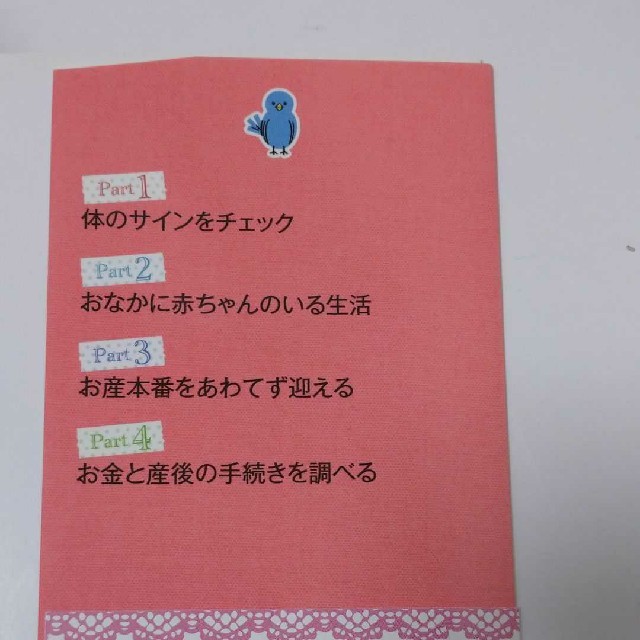 Part 1
体のサインをチェック
Part 2
おなかに赤ちゃんのいる生活
Part 3
お産本番をあわてず迎える
Part 4
お金と産後の手続きを調べる